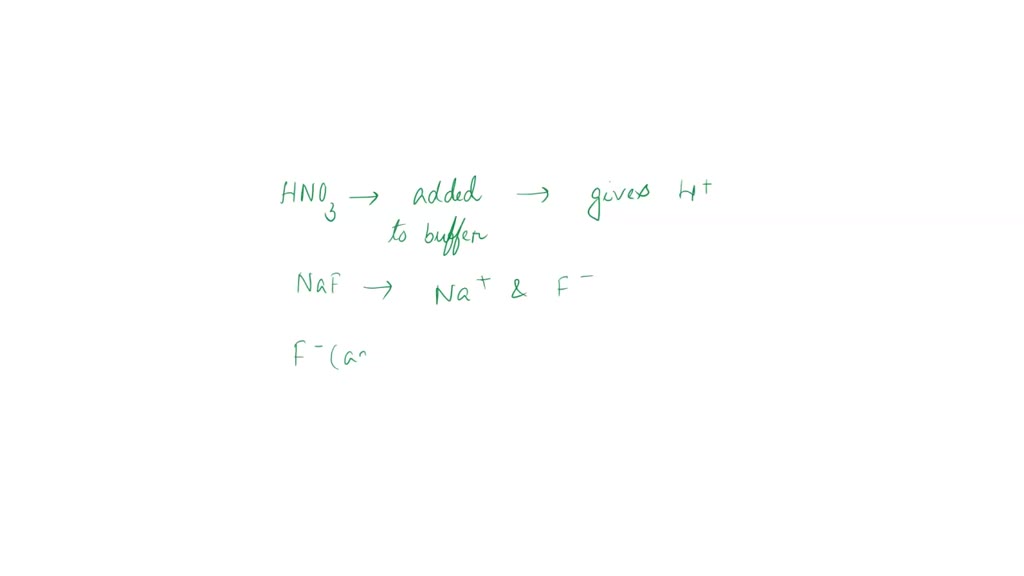 HNO₃ → added → gives H⁺
to buffer
NaF → Na⁺ & F⁻
F⁻(a